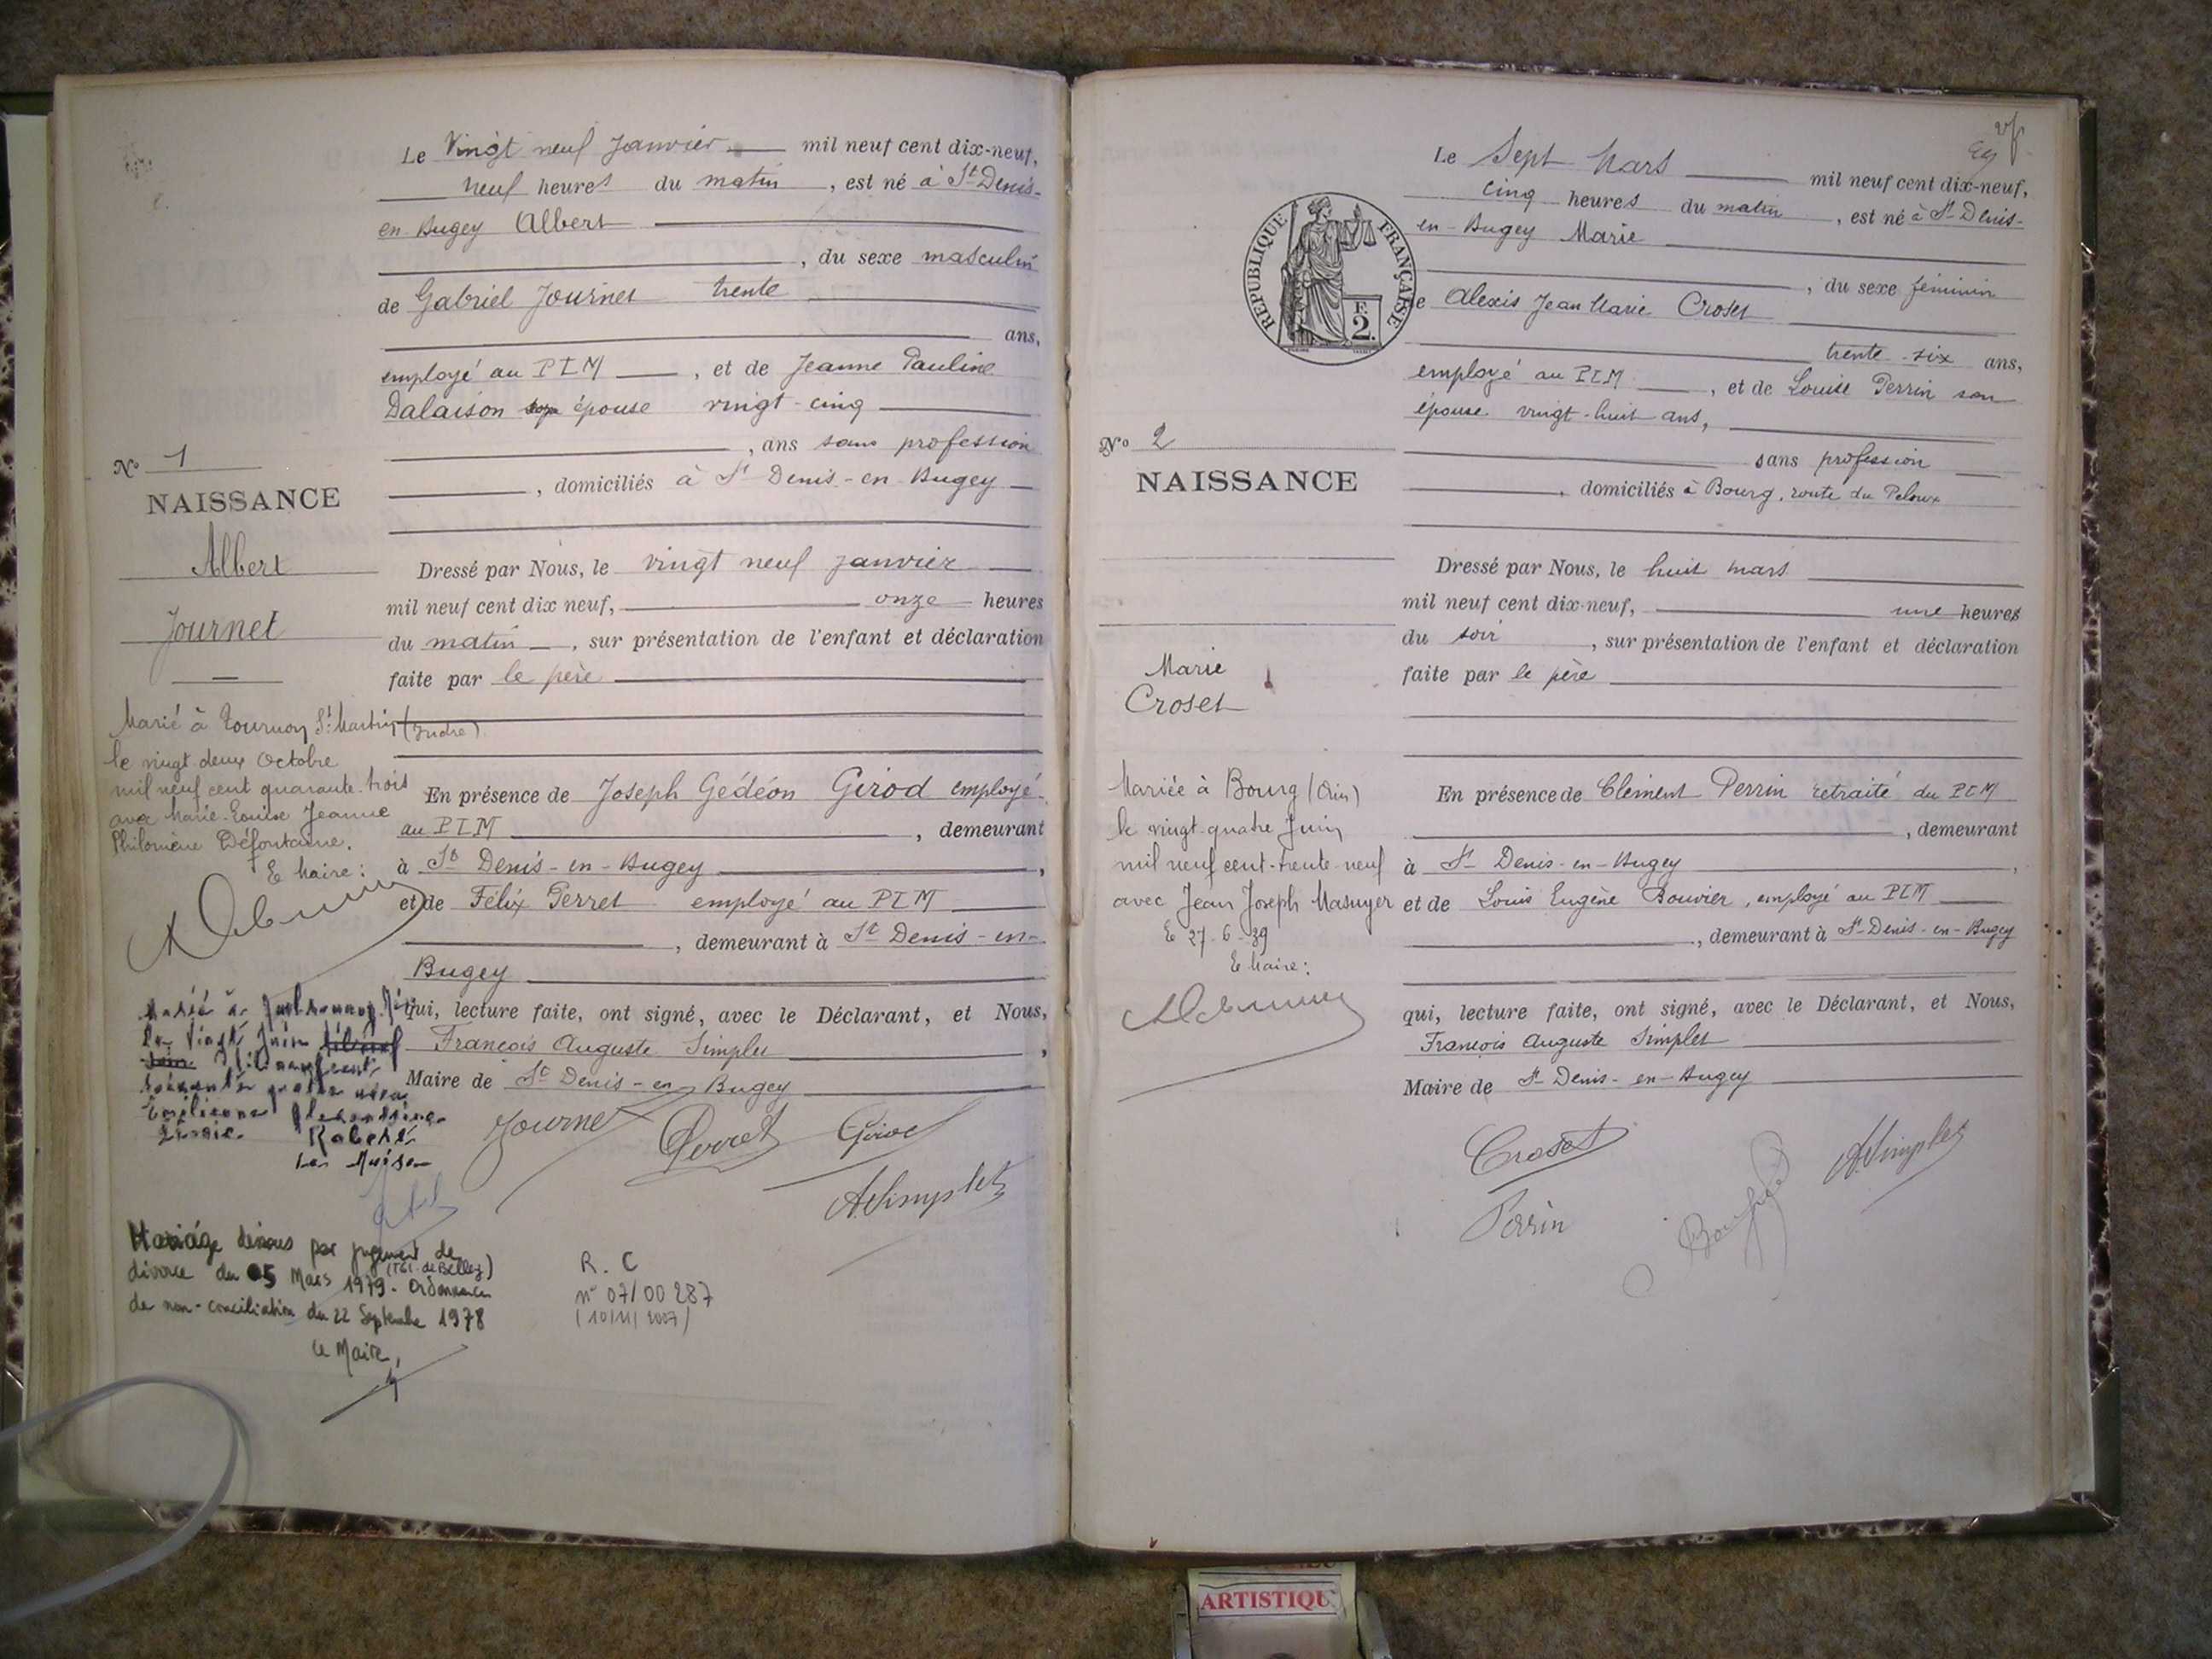 Le Vingt neuf Janvier mil neuf cent dix-neuf,
neuf heures du matin, est né à St Denis-
en-Bugey Albert
, du sexe masculin
de Gabriel Journet trente
ans,
employé au PLM, et de Jeanne Pauline
Dalaison épouse vingt-cinq
, ans sans profession
, domiciliés à St Denis-en-Bugey
No 1
NAISSANCE
Albert
Journet
Dressé par Nous, le vingt neuf janvier
mil neuf cent dix neuf, onze heures
du matin, sur présentation de l'enfant et déclaration
faite par le père
Marié à Tournon St Martin (Indre)
le vingt deux Octobre
mil neuf cent quarante-trois
avec Marie-Louise Jeanne
Philomène Défontaine.
Le Maire:
En présence de Joseph Gédéon Girod employé
au PLM, demeurant
à St Denis-en-Bugey,
et de Félix Perret employé au PLM
, demeurant à St Denis-en-
Bugey
qui, lecture faite, ont signé, avec le Déclarant, et Nous,
François Auguste Simplet,
Maire de St Denis-en-Bugey
Marié à
le Vingt Juin
soixante quatre avec
Alexandrine
Le Maire
Journet Perret Girod
ASimplet
Mariage dissous par jugement de
(TGI de Belley)
divorce du 05 Mars 1979. Ordonnance
de non-conciliation du 22 Septembre 1978
Le Maire,
R. C
n° 07/00287
Le Sept Mars mil neuf cent dix-neuf,
cinq heures du matin, est né à St Denis-
en-Bugey Marie
, du sexe féminin
de Alexis Jean Marie Croset
trente-six ans,
employé au PLM, et de Louise Perrin son
épouse vingt-huit ans,
sans profession
, domiciliés à Bourg, route du Peloux
RÉPUBLIQUE FRANÇAISE
F.
2.
No 2
NAISSANCE
Marie
Croset
Dressé par Nous, le huit mars
mil neuf cent dix-neuf, une heures
du soir, sur présentation de l'enfant et déclaration
faite par le père
Mariée à Bourg (Ain)
le vingt-quatre Juin
mil neuf cent-trente-neuf
avec Jean Joseph Masuyer
Le 27-6-39
Le Maire:
En présence de Clément Perrin retraité du PLM
, demeurant
à St Denis-en-Bugey,
et de Louis Eugène Bouvier, employé au PLM
, demeurant à St-Denis-en-Bugey
qui, lecture faite, ont signé, avec le Déclarant, et Nous,
François Auguste Simplet
Maire de St Denis-en-Bugey
Croset
ASimplet
Perrin
ARTISTIQU